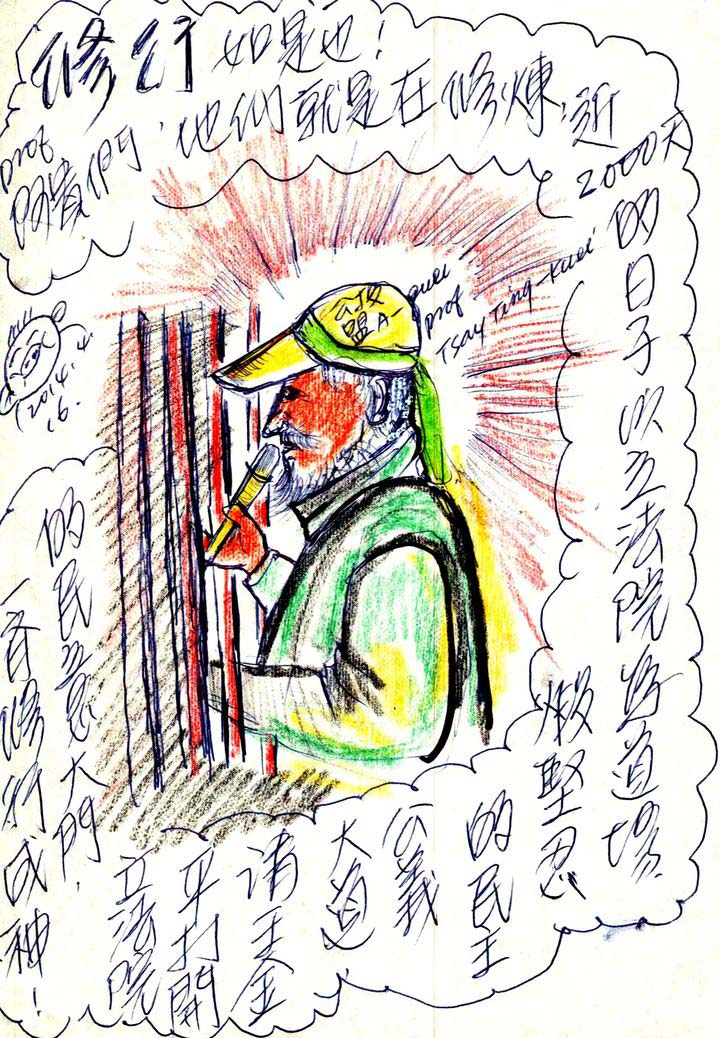 修行如是也!
prof
阿貴們,他們就是在修煉,近
2000天
的日子以立法院為道場,
煅堅忍
的民主
公義
大道
請王金
平打開
立法院
的民意大門.
一齊修行成神!
公投
盟
A-guei
prof
Tsay Ting-kuei
2014.4.
16.